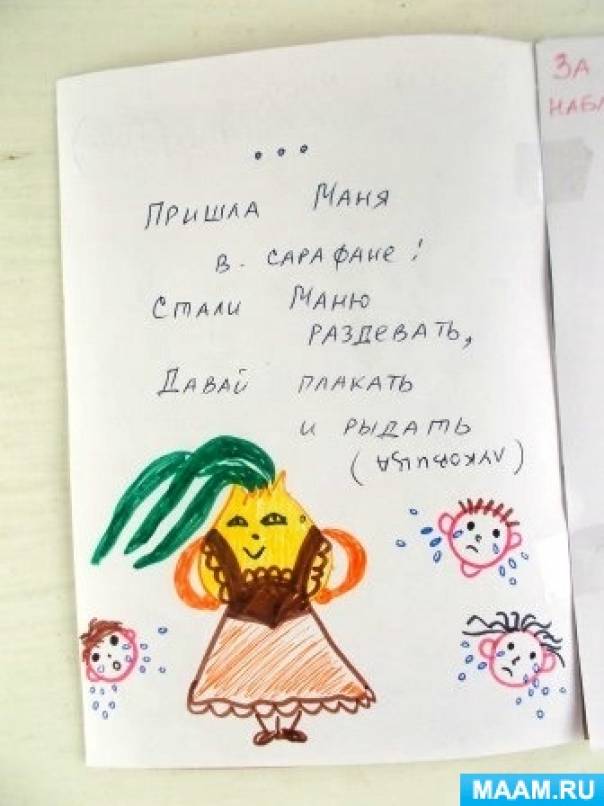 ...
Пришла Маня
в сарафане!
Стали Маню
раздевать,
Давай плакать
и рыдать
(луковица)
За
набл
MAAM.RU